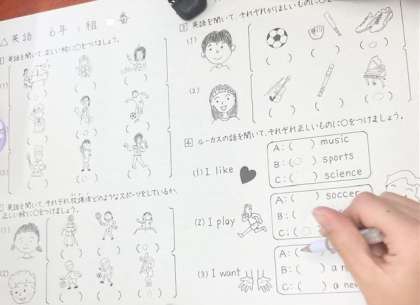 英語 6年 組 番
英語を聞いて、正しい絵に○をつけましょう。
(1)
英語を聞いて、それぞれがほしいものに○をつけましょう。
(1)
(2)
英語を聞いて、それぞれ、放課後どのようなスポーツをしているか、
正しい絵に○をつけましょう。
(1)
(2)
4 ルーカスの話を聞いて、それぞれ正しいものに○をつけましょう。
(1) I like
A:( ) music
B:(○) sports
C:( ) science
(2) I play
A:( ) soccer
B:(
C:(
(3) I want
A:(
B:( ) a
C:( ) a new